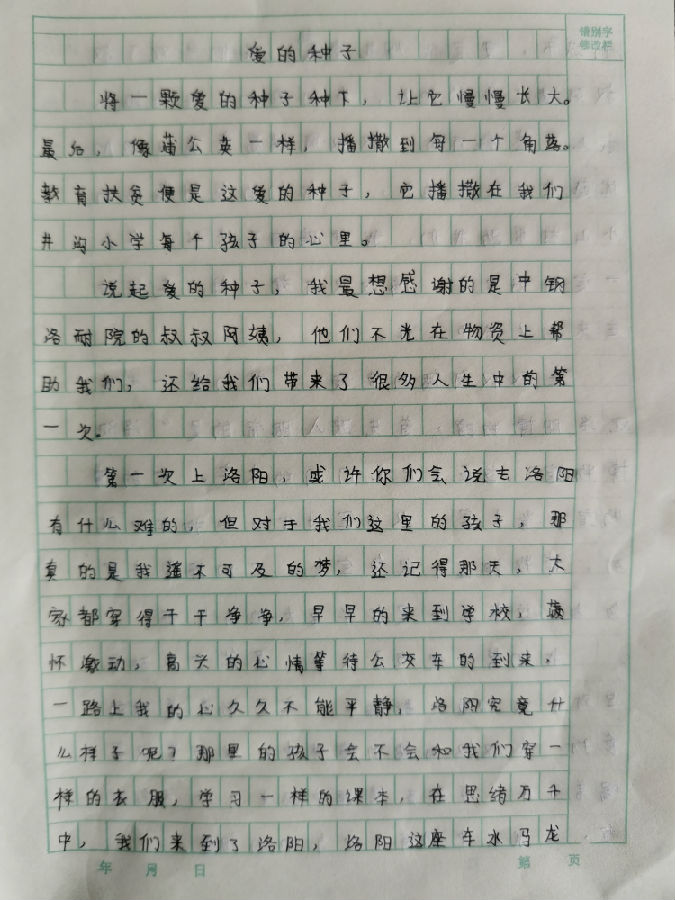 错别字
修改栏
爱的种子
将一颗爱的种子种下，让它慢慢长大。
最后，像蒲公英一样，播撒到每一个角落。
教育扶贫便是这爱的种子，它播撒在我们
井沟小学每个孩子的心里。
说起爱的种子，我最想感谢的是中钢
洛耐院的叔叔阿姨，他们不光在物资上帮
助我们，还给我们带来了很多人生中的第
一次。
第一次上洛阳，或许你们会说去洛阳
有什么难的，但对于我们这里的孩子，那
真的是我遥不可及的梦，还记得那天，大
家都穿得干干净净，早早的来到学校，满
怀激动，高兴的心情等待公交车的到来，
一路上我的心久久不能平静，洛阳究竟什
么样子呢？那里的孩子会不会和我们穿一
样的衣服，学习一样的课本，在思绪万千
中，我们来到了洛阳，洛阳这座车水马龙，
年 月 日 第 页